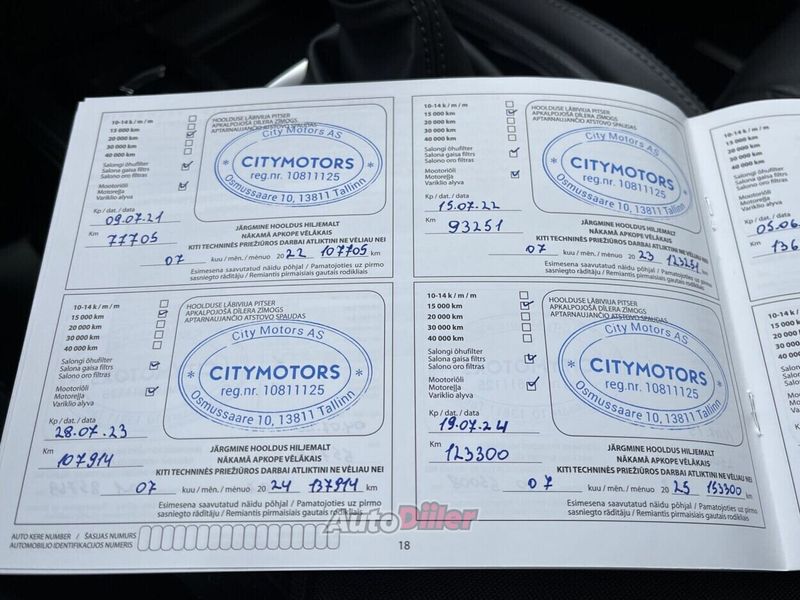 10-14 k / m / m
15 000 km
20 000 km
30 000 km
40 000 km
Salongi õhufilter
Salona gaisa filtrs
Salono oro filtras
Mootoriõli
Motoreļļa
Variklio alyva
Kp / dat. / data
09.07.21
Km
77705
HOOLDUSE LÄBIVIIJA PITSER
APKALPOJOŠĀ DĪLERA ZĪMOGS
APTARNAUJANČIO ATSTOVO SPAUDAS
City Motors AS
* CITYMOTORS *
reg.nr. 10811125
Osmussaare 10, 13811 Tallinn
JÄRGMINE HOOLDUS HILJEMALT
NĀKAMĀ APKOPE VĒLĀKAIS
KITI TECHNINĖS PRIEŽIŪROS DARBAI ATLIKTINI NE VĖLIAU NEI
07 kuu / mēn. / mėnuo 20 22 107705 km
Esimesena saavutatud näidu põhjal / Pamatojoties uz pirmo
sasniegto rādītāju / Remiantis pirmaisiais gautais rodikliais
10-14 k / m / m
15 000 km
20 000 km
30 000 km
40 000 km
Salongi õhufilter
Salona gaisa filtrs
Salono oro filtras
Mootoriõli
Motoreļļa
Variklio alyva
Kp / dat. / data
15.07.22
Km
93251
HOOLDUSE LÄBIVIIJA PITSER
APKALPOJOŠĀ DĪLERA ZĪMOGS
APTARNAUJANČIO ATSTOVO SPAUDAS
City Motors AS
* CITYMOTORS *
reg.nr. 10811125
Osmussaare 10, 13811 Tallinn
JÄRGMINE HOOLDUS HILJEMALT
NĀKAMĀ APKOPE VĒLĀKAIS
KITI TECHNINĖS PRIEŽIŪROS DARBAI ATLIKTINI NE VĖLIAU NEI
07 kuu / mēn. / mėnuo 20 23 123251 km
Esimesena saavutatud näidu põhjal / Pamatojoties uz pirmo
sasniegto rādītāju / Remiantis pirmaisiais gautais rodikliais
10-14 k / m / m
15 000 km
20 000 km
30 000 km
40 000 km
Salongi õhufilter
Salona gaisa filtrs
Salono oro filtras
Mootoriõli
Motoreļļa
Variklio alyva
Kp / dat. / data
28.07.23
Km
107914
HOOLDUSE LÄBIVIIJA PITSER
APKALPOJOŠĀ DĪLERA ZĪMOGS
APTARNAUJANČIO ATSTOVO SPAUDAS
City Motors AS
* CITYMOTORS *
reg.nr. 10811125
Osmussaare 10, 13811 Tallinn
JÄRGMINE HOOLDUS HILJEMALT
NĀKAMĀ APKOPE VĒLĀKAIS
KITI TECHNINĖS PRIEŽIŪROS DARBAI ATLIKTINI NE VĖLIAU NEI
07 kuu / mēn. / mėnuo 20 24 137914 km
Esimesena saavutatud näidu põhjal / Pamatojoties uz pirmo
sasniegto rādītāju / Remiantis pirmaisiais gautais rodikliais
10-14 k / m / m
15 000 km
20 000 km
30 000 km
40 000 km
Salongi õhufilter
Salona gaisa filtrs
Salono oro filtras
Mootoriõli
Motoreļļa
Variklio alyva
Kp / dat. / data
19.07.24
Km
123300
HOOLDUSE LÄBIVIIJA PITSER
APKALPOJOŠĀ DĪLERA ZĪMOGS
APTARNAUJANČIO ATSTOVO SPAUDAS
City Motors AS
* CITYMOTORS *
reg.nr. 10811125
Osmussaare 10, 13811 Tallinn
JÄRGMINE HOOLDUS HILJEMALT
NĀKAMĀ APKOPE VĒLĀKAIS
KITI TECHNINĖS PRIEŽIŪROS DARBAI ATLIKTINI NE VĖLIAU NEI
07 kuu / mēn. / mėnuo 20 25 153300 km
Esimesena saavutatud näidu põhjal / Pamatojoties uz pirmo
sasniegto rādītāju / Remiantis pirmaisiais gautais rodikliais
AUTO KERE NUMBER / ŠASIJAS NUMURS
AUTOMOBILIO IDENTIFIKACIJOS NUMERIS
AutoDiller
18
10-14 k / m
15 000 km
20 000 km
30 000 km
40 000 km
Salongi
Salona
Salono
Mootoriõli
Motoreļļa
Variklio
Kp / dat.
05.06
Km
136
10-14 k
15 000
20 000
30 000
40 000